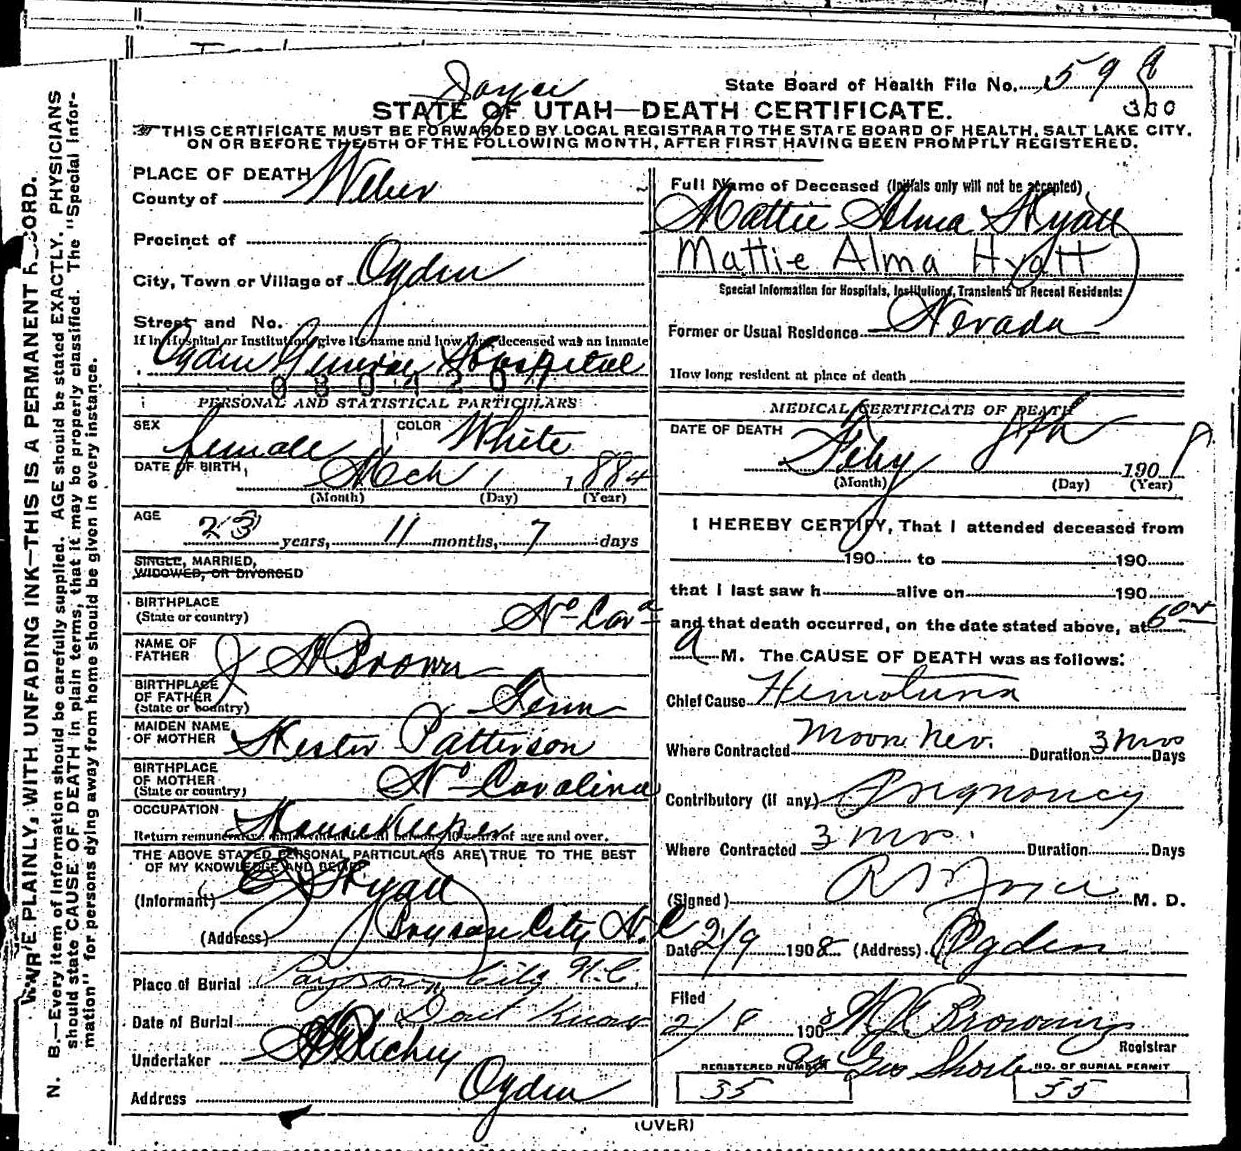 Joyce
State Board of Health File No. 598
360
STATE OF UTAH—DEATH CERTIFICATE.
THIS CERTIFICATE MUST BE FORWARDED BY LOCAL REGISTRAR TO THE STATE BOARD OF HEALTH, SALT LAKE CITY,
ON OR BEFORE THE 5TH OF THE FOLLOWING MONTH, AFTER FIRST HAVING BEEN PROMPTLY REGISTERED.
WRITE PLAINLY, WITH UNFADING INK—THIS IS A PERMANENT RECORD.
N. B.—Every item of information should be carefully supplied. AGE should be stated EXACTLY. PHYSICIANS
should state CAUSE OF DEATH in plain terms, that it may be properly classified. The "Special Infor-
mation" for persons dying away from home should be given in every instance.
PLACE OF DEATH
County of Weber
Precinct of
City, Town or Village of Ogden
Street and No.
If in Hospital or Institution, give its name and how long deceased was an inmate
Ogden General Hospital
PERSONAL AND STATISTICAL PARTICULARS
SEX female COLOR White
DATE OF BIRTH, Mch 1 1884
(Month) (Day) (Year)
AGE
23 years, 11 months, 7 days
SINGLE, MARRIED,
WIDOWED, OR DIVORCED
BIRTHPLACE
(State or country) No Cara
NAME OF
FATHER J H Brown
BIRTHPLACE
OF FATHER
(State or country) Tenn
MAIDEN NAME
OF MOTHER Hester Patterson
BIRTHPLACE
OF MOTHER
(State or country) No Carolina
OCCUPATION Housekeeper
Return remunerative employment for all persons 10 years of age and over.
THE ABOVE STATED PERSONAL PARTICULARS ARE TRUE TO THE BEST
OF MY KNOWLEDGE AND BELIEF
(Informant) Hyatt
(Address) Bryson City N. C
Place of Burial Payson City N.C.
Date of Burial Dont Know
Undertaker Richey
Address Ogden
Full Name of Deceased (Initials only will not be accepted)
Mattie Alma Hyatt
Mattie Alma Hyatt
Special Information for Hospitals, Institutions, Transients or Recent Residents:
Former or Usual Residence Nevada
How long resident at place of death
MEDICAL CERTIFICATE OF DEATH
DATE OF DEATH
Feby 8th 190
(Month) (Day) (Year)
I HEREBY CERTIFY, That I attended deceased from
190 to 190
that I last saw h alive on 190
and that death occurred, on the date stated above, at 6
a M. The CAUSE OF DEATH was as follows:
Chief Cause Hematuria
Where Contracted Moon. Nev. Duration 3 mos Days
Contributory (if any) Pregnancy
Where Contracted 3 mos. Duration Days
(Signed) R S Joyce M. D.
Date 2/9 1908 (Address) Ogden
Filed
2/8 1908
Registrar
Geo Shorten
REGISTERED NUMBER
35
NO. OF BURIAL PERMIT
35
(OVER)